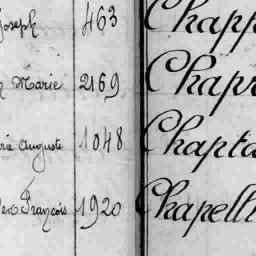 Joseph 463 Chapp
Marie 2169 Chapr
Auguste 1048 Chapta
François 1920 Chapelli